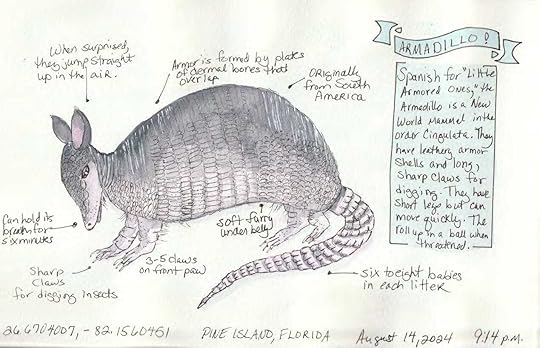 When surprised,
they jump straight
up in the air.
Armor is formed by plates
of dermal bones that
overlap
Originally
from South
America
ARMADILLO!
Spanish for "Little
Armored Ones," the
Armadillo is a New
World Mammel in the
order Cingulata. They
have leathery armor
shells and long,
sharp claws for
digging. They have
short legs but can
move quickly. The
roll up in a ball when
threatened.
Can hold its
breath for
six minutes
Sharp
Claws
for digging insects
3-5 claws
on front paw
soft furry
under belly
six to eight babies
in each litter
26.6704007, -82.1560451
PINE ISLAND, FLORIDA
August 14, 2024
9:14 p.m.